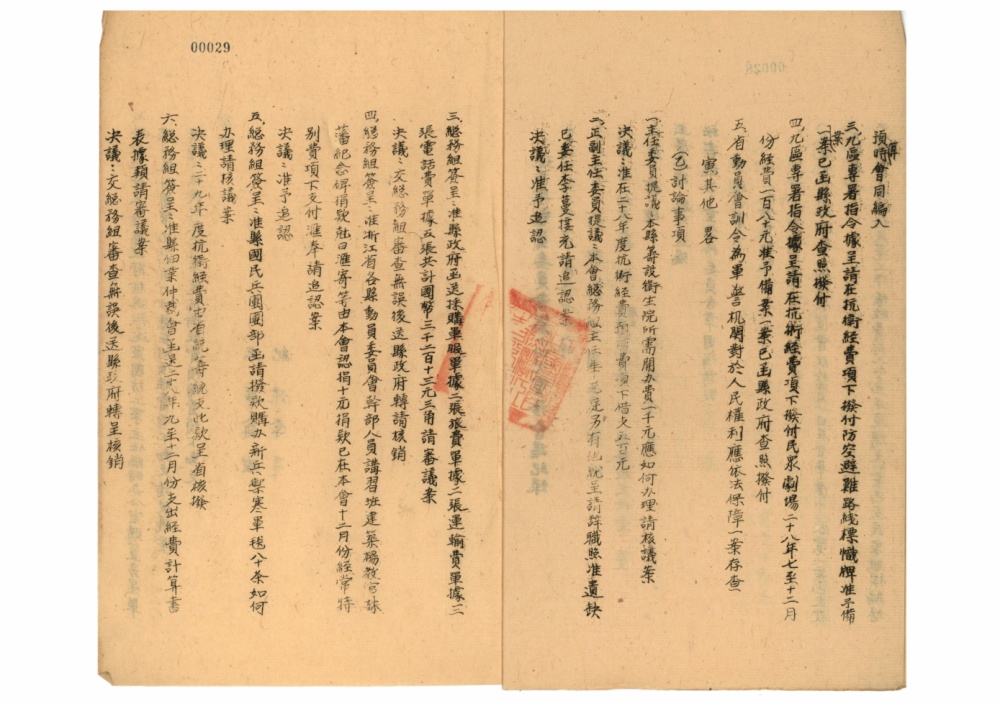 00028
預算時會同編入
三、九區專署指令據呈請在抗衛經費項下撥付防空避難路綫標幟牌准予備案
一案已函縣政府查照撥付
四、九區專署指令據呈請在抗衛經費項下撥付民眾劇場二十八年七至十二月
份經費一百八十元准予備案一案已函縣政府查照撥付
五、省動員會訓令為軍警机關對於人民權利應依法保障一案存查
寅其他 畧
(乙)討論事項
一、主任委員提議:本縣籌設衛生院所需開办費一千元應如何办理請核議案
决議:准在二十八年度抗衛經費項下借支五百元
二、正副主任委員提議:本會總務組主任另有他就呈請辞職照准遺缺
已委任李蔓接充請追認案
决議:准予追認
00029
三、總務組簽呈:准縣政府函送採購軍服單據二張旅費單據二張運輸費單據二
張電話費單據五張共計國幣三千二百十三元三角請審議案
决議:交總務組審查無誤後送縣政府轉請核銷
四、總務組簽呈:准浙江省各縣動員委員會幹部人員講習班建築楊教官
藩紀念碑捐欵尅日滙寄等由本會認捐十元捐欵已在本會十二月份經常特
別費項下支付滙奉請追認案
决議:准予追認
五、總務組簽呈:准縣國民兵團團部函請撥欵購办新兵禦寒軍毯八十条如何
办理請核議案
决議:二十九年度抗衛經費由省統支此欵呈省核撥
六、總務組簽呈:准縣佃業仲裁會函送二十八年九至十二月份支出經費計算書
表據類請審議案
决議:交總務組審查無誤後送縣政府轉呈核銷